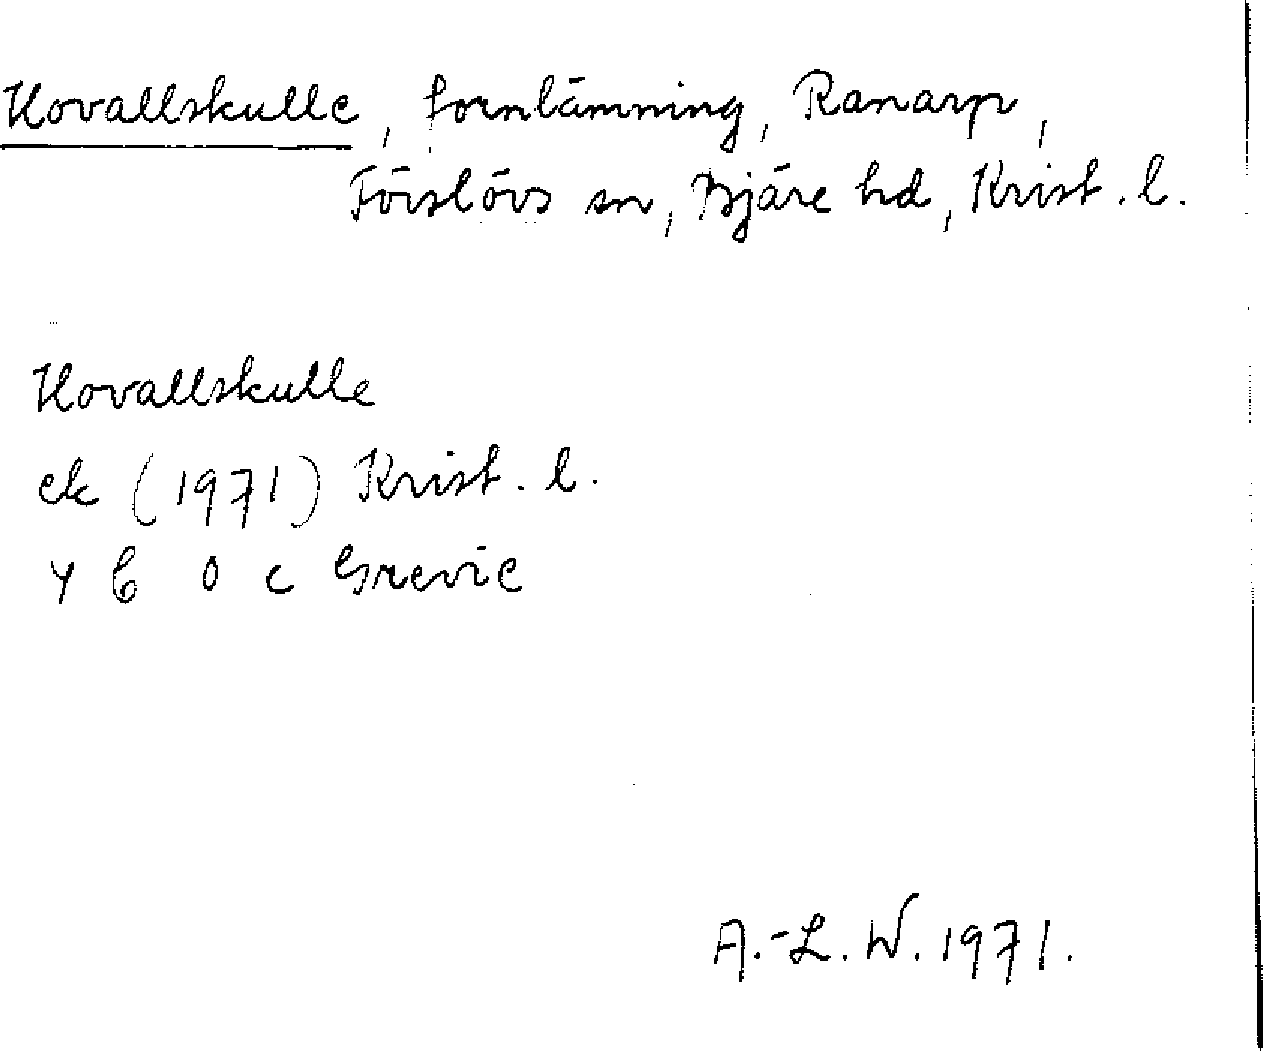 Hovallskulle, fornlämning, Ranarp,
Förslövs sn, Bjäre hd, Krist. l.
Hovallskulle
ek (1971) Krist. l.
4 C 0 c Grevie
A.-L. W. 1971.